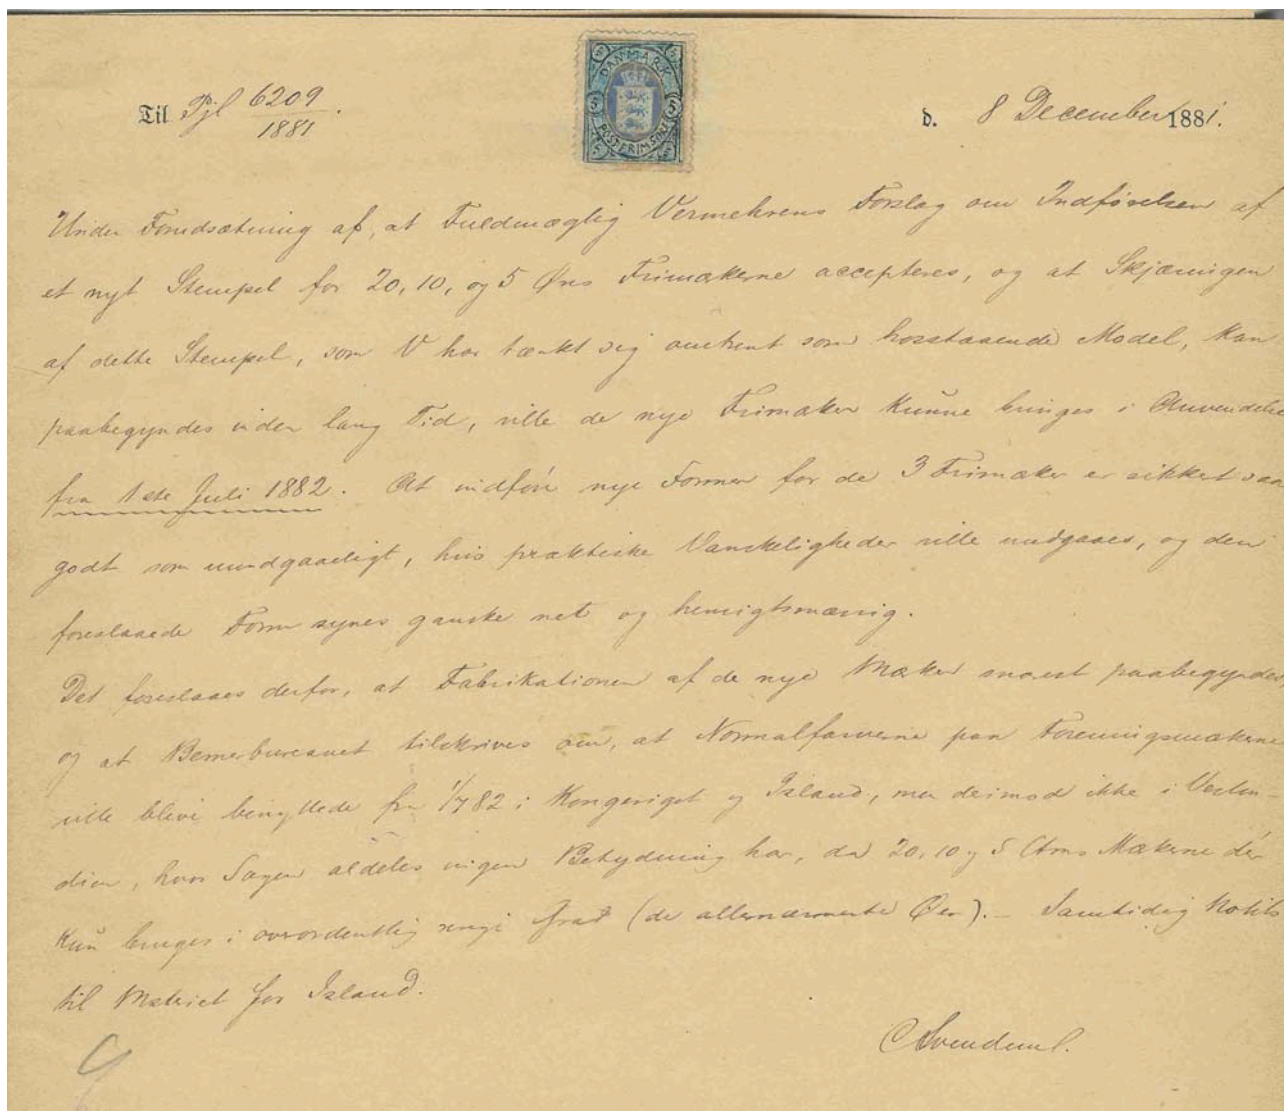 DANMARK
5 5
POSTFRIMÆRKE
Til Pjl 6209/1881.
d. 8 December 1881.
Under Forudsætning af, at Fuldmægtig Vermehrens Forslag om Indførelsen af
et nyt Stempel for 20, 10, og 5 Øres Frimækerne accepteres, og at Skjæringen
af dette Stempel, som V har tænkt sig omtrent som hosstaaende Model, kan
paabegyndes inden lang Tid, ville de nye Frimæker kunne bringes i Anvendelse
fra 1ste Juli 1882. At indføre nye Former for de 3 Frimæker er sikkert saa
godt som uundgaaeligt, hvis praktiske Vanskeligheder ville undgaaes, og den
foreslaaede Form synes ganske net og hensigtsmæssig.
Det foreslaaes derfor, at Fabrikationen af de nye Mæker snarest paabegyndes
og at Bernerbureauet tilskrives om, at Normalfarverne paa Foreningsmækerne
ville blive benyttede fra 1/7 82 i Kongeriget og Island, men derimod ikke i Vestin-
dien, hvor Sagen aldeles ingen Betydning har, da 20, 10 og 5 Cents Mækerne dér
kun bruges i overordentlig ringe Grad (de allernærmeste Øer). - Samtidig Notits
til Mstriet for Island.
CSvendsen.